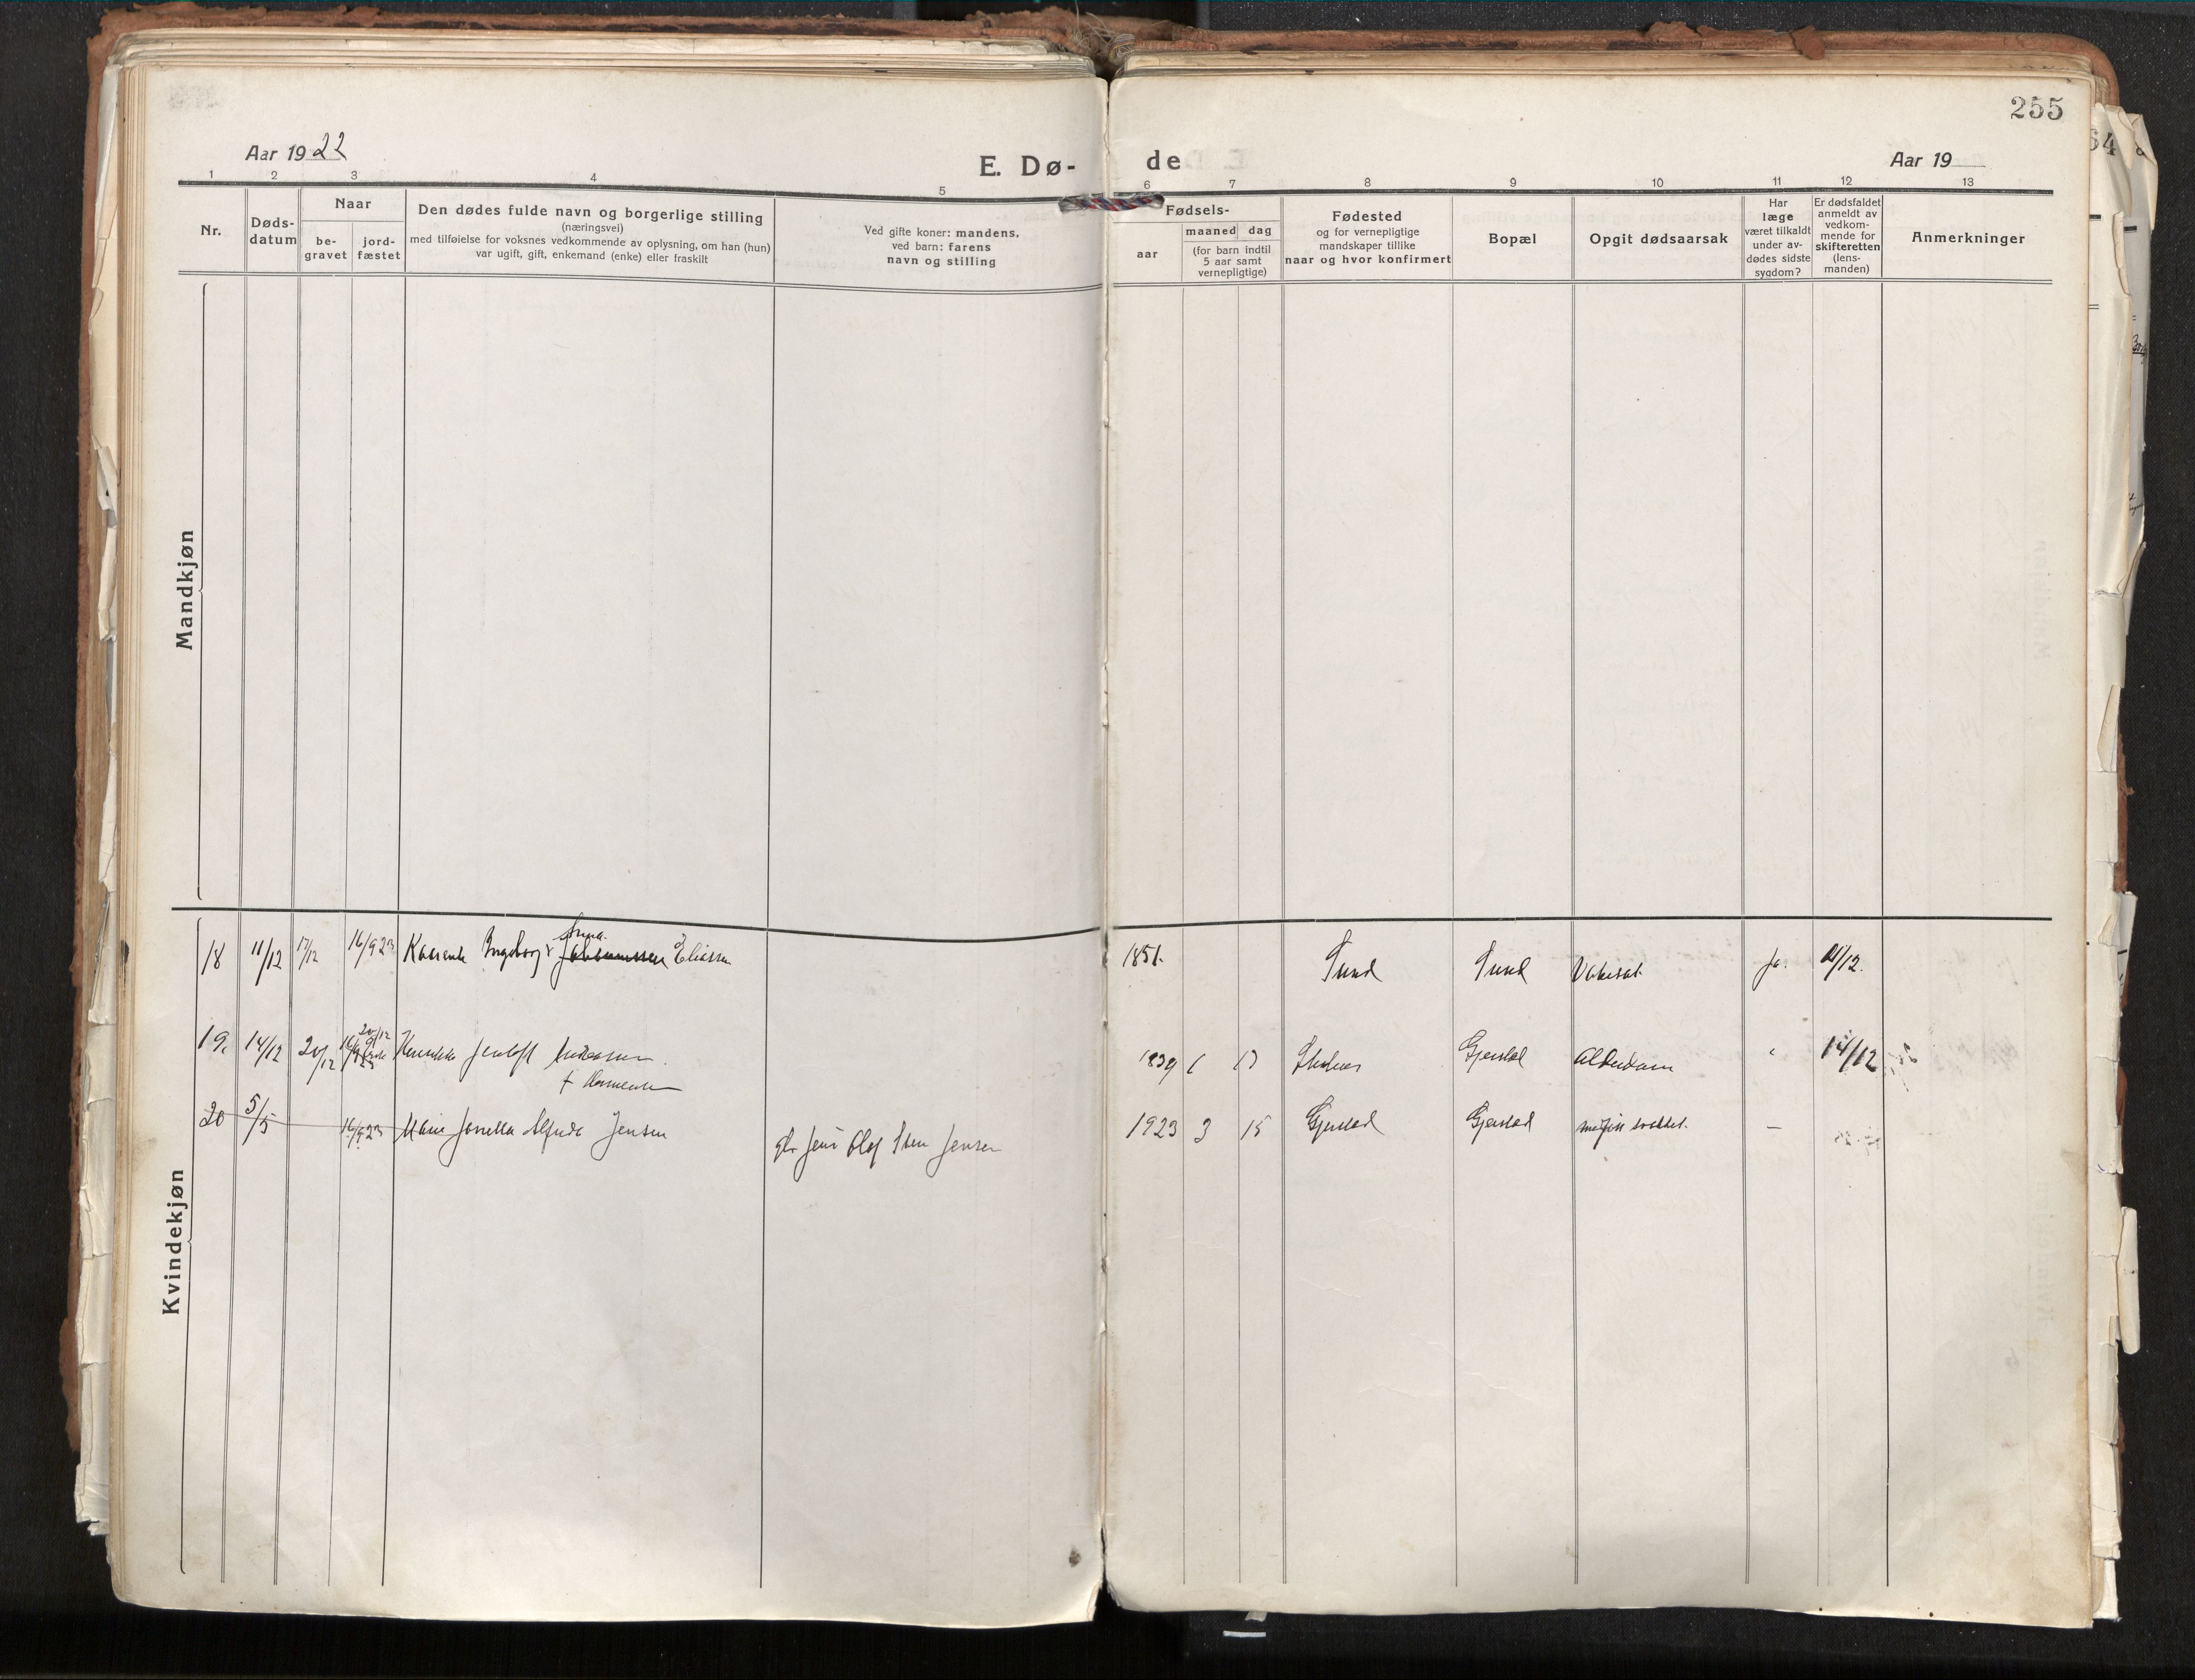 255
Aar 1922
E. Dø-
de
Aar 19
1 2 3 4 5 6 7 8 9 10 11 12 13
Nr.
Døds-
datum
Naar
be-
gravet
jord-
fæstet
Den dødes fulde navn og borgerlige stilling
(næringsvei)
med tilføielse for voksnes vedkommende av oplysning, om han (hun)
var ugift, gift, enkemand (enke) eller fraskilt
Ved gifte koner: mandens,
ved barn: farens
navn og stilling
Fødsels-
aar
maaned dag
(for barn indtil
5 aar samt
vernepligtige)
Fødested
og for vernepligtige
mandskaper tillike
naar og hvor konfirmert
Bopæl
Opgit dødsaarsak
Har
læge
været tilkaldt
under av-
dødes sidste
sygdom?
Er dødsfaldet
anmeldt av
vedkom-
mende for
skifteretten
(lens-
manden)
Anmerkninger
Mandkjøn
Kvindekjøn
18 11/12 17/12 16/9 23 Ingeborg Eliassen 1851. Sund Sund Ja. 11/12.
20/12
19. 14/12 20/12 16/9 23 Jentoft 1839 1 13 Gjerstad 14/12
20 5/5 16/9 23 Marie Alfrida Jensen 1923 3 15 Gjerstad Gjerstad —
Jens Olaf Jensen